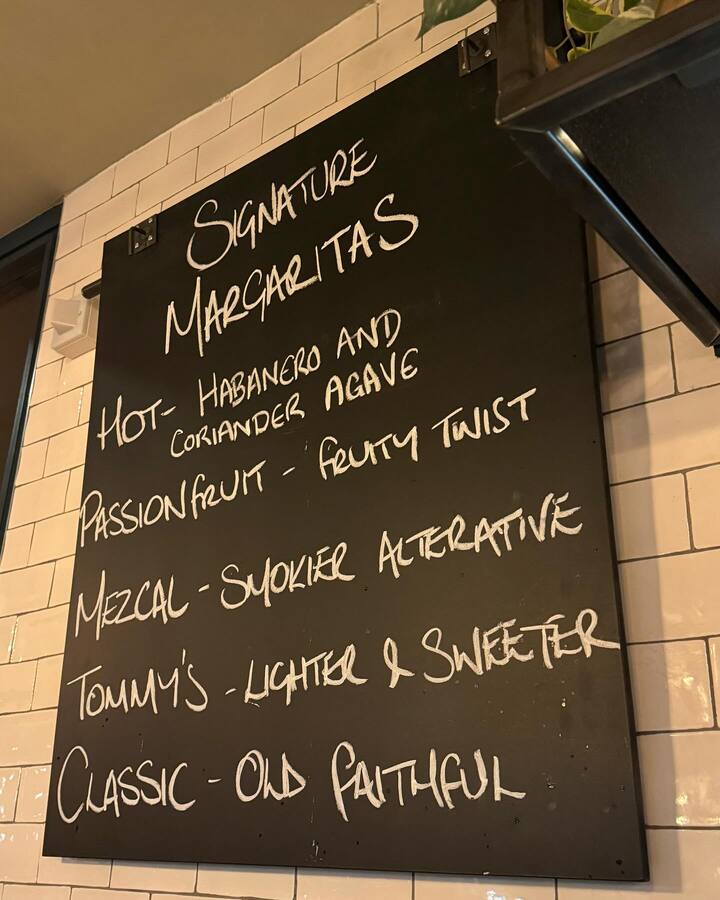 SIGNATURE
MARGARITAS
HOT - HABANERO AND
CORIANDER AGAVE
PASSIONFRUIT - FRUITY TWIST
MEZCAL - SMOKIER ALTERATIVE
TOMMY'S - LIGHTER & SWEETER
CLASSIC - OLD FAITHFUL